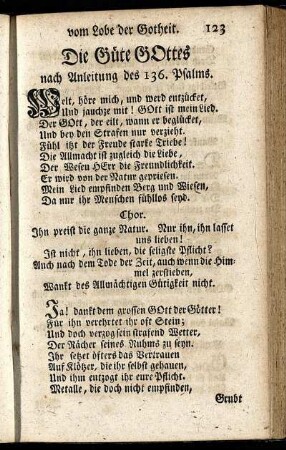 vom Lobe der Gotheit. 123
Die Güte GOttes
nach Anleitung des 136. Psalms.
Welt, höre mich, und werd entzücket,
Und jauchze mit! GOtt ist mein Lied.
Der GOtt, der eilt, wann er beglücket,
Und bey den Strafen nur verzieht.
Fühl itzt der Freude starke Triebe!
Die Allmacht ist zugleich die Liebe,
Der Wesen HErr die Freundlichkeit.
Er wird von der Natur gepriesen.
Mein Lied empfinden Berg und Wiesen,
Da nur ihr Menschen fühllos seyd.
Chor.
Ihn preist die ganze Natur. Nur ihn, ihn lasset
uns lieben!
Ist nicht, ihn lieben, die seligste Pflicht?
Auch nach dem Tode der Zeit, auch wenn die Him-
mel zerstieben,
Wankt des Allmächtigen Gütigkeit nicht.
Ja! dankt dem grossen GOtt der Götter!
Für ihn verehrtet ihr oft Stein;
Und doch verzog sein strafend Wetter,
Der Rächer seines Ruhms zu seyn.
Ihr setzet öfters das Vertrauen
Auf Klötzer, die ihr selbst gehauen,
Und ihm entzogt ihr eure Pflicht.
Metalle, die doch nicht empfinden,
Grubt